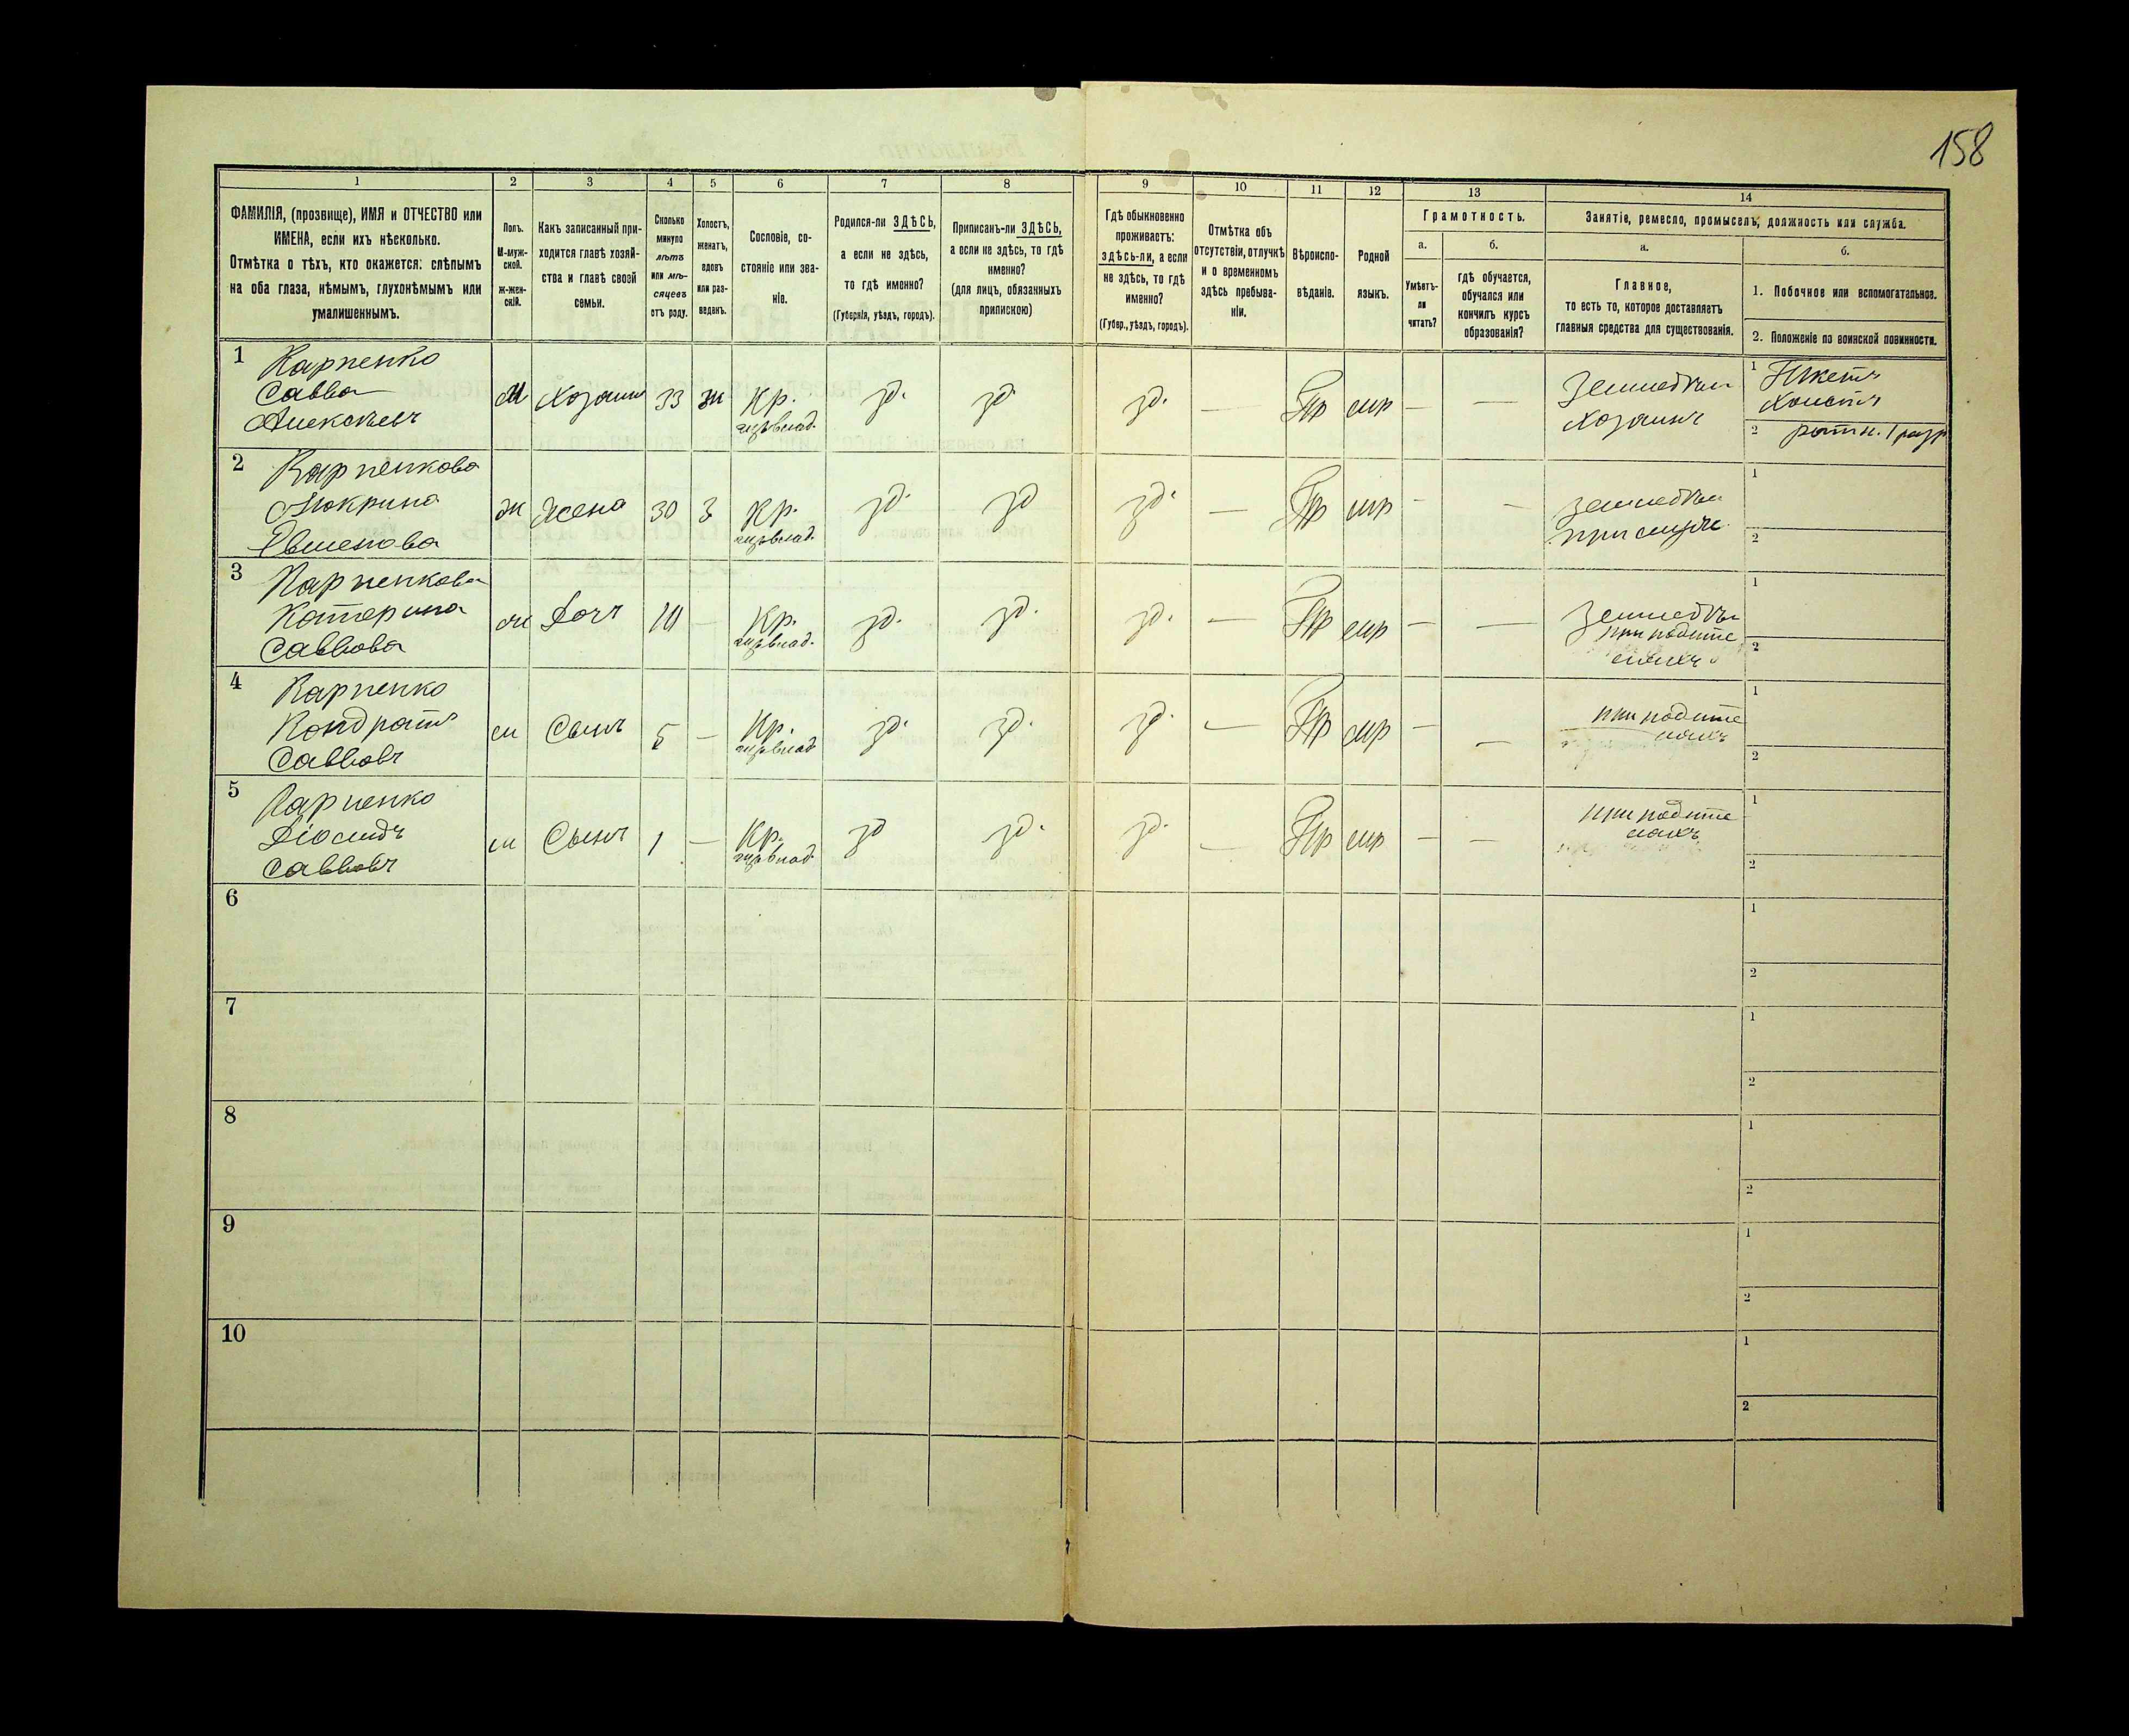 158
1 2 3 4 5 6 7 8 9 10 11 12 13 14
ФАМИЛІЯ, (прозвище), ИМЯ и ОТЧЕСТВО или
ИМЕНА, если ихъ нѣсколько.
Отмѣтка о тѣхъ, кто окажется: слѣпымъ
на оба глаза, нѣмымъ, глухонѣмымъ или
умалишеннымъ.
Полъ.
М-муж-
ской.
ж-жен-
скій.
Какъ записанный при-
ходится главѣ хозяй-
ства и главѣ своей
семьи.
Сколько
минуло
лѣтъ
или мѣ-
сяцевъ
отъ роду.
Холостъ,
женатъ,
вдовъ
или раз-
веденъ.
Сословіе, со-
стояніе или зва-
ніе.
Родился-ли ЗДѢСЬ,
а если не здѣсь,
то гдѣ именно?
(Губернія, уѣздъ, городъ).
Приписанъ-ли ЗДѢСЬ,
а если не здѣсь, то гдѣ
именно?
(для лицъ, обязанныхъ
припискою)
Гдѣ обыкновенно
проживаетъ:
здѣсь-ли, а если
не здѣсь, то гдѣ
именно?
(Губер., уѣздъ, городъ).
Отмѣтка объ
отсутствіи, отлучкѣ
и о временномъ
здѣсь пребыва-
ніи.
Вѣроиспо-
вѣданіе.
Родной
языкъ.
Грамотность.
а.
Умѣетъ-
ли
читать?
б.
гдѣ обучается,
обучался или
кончилъ курсъ
образованія?
Занятіе, ремесло, промыселъ, должность или служба.
а.
Главное,
то есть то, которое доставляетъ
главныя средства для существованія.
б.
1. Побочное или вспомогательное.
2. Положеніе по воинской повинности.
1
Карпенко
Савва
Алексѣевъ
М Хозяинъ 33 ж Кр. зд. зд. зд. — Пр мр — —
Земледѣлі
Хозяинъ
1
2 ратн. 1 разр
2
Карпенкова
Евменова
ж Жена 30 з Кр. зд. зд зд. — Пр мр - -
земледѣлі
при мужѣ
1
2
3
Карпенкова
Катерина
Саввова
ж Дочь 10 — Кр. зд. зд. зд. — Пр мр — —
Земледѣлі
при родите
ляхъ
1
2
4
Карпенко
Кондратъ
Саввовъ
м Сынъ 5 — Кр. зд. зд. зд. — Пр мр — —
при родите
ляхъ
1
2
5
Карпенко
Саввовъ
м Сынъ 1 — Кр. зд зд. зд. — Пр мр — —
при родите
ляхъ
1
2
6
1
2
7
1
2
8
1
2
9
1
2
10
1
2